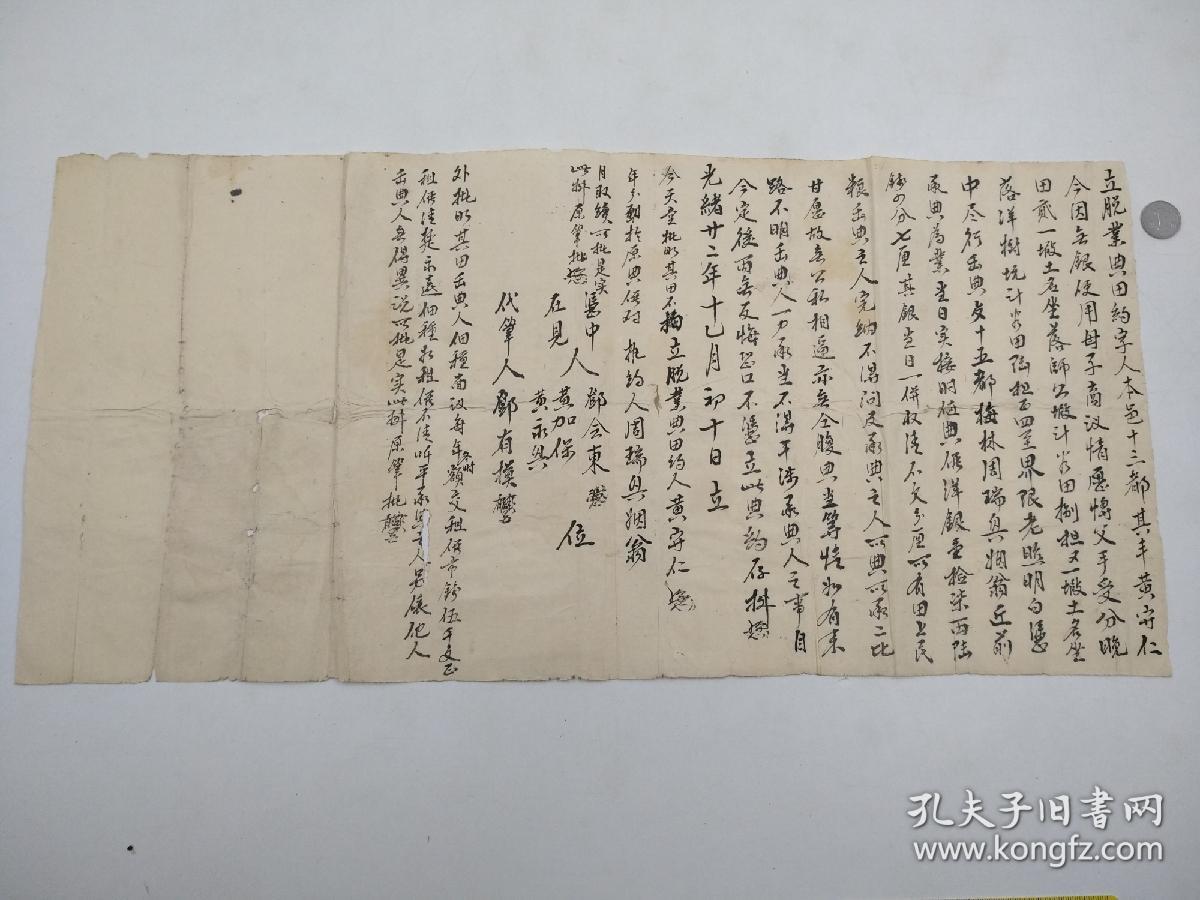 立脱業典田約字人本邑十三都其丰黄守仁
今因無銀使用母子商议情愿將父手受分晚
田貳一墢土名坐落師公墢計谷田捌担又一墢土名坐
落洋樹坑計谷田陆担正四至界限老照明白憑
中尽行出典与十五都梅林周瑞興姻翁丘前
承典為業当日实接時值典價洋銀壹拾柒両陆
錢四分七厘其銀当日一併収清不欠分厘所有田上民
粮出典之人完納不渴问及承典之人所典所承二比
甘愿故無公私相逼亦無仝腹典当等情如有来
路不明出典人一力承当不渴干涉承典人之事自
今定後両無反悔恐口不憑立此典約存拠
光緒廿二年十乙月初十日立
脱業典田约人黄守仁
批明其田不拘
年分動扵原典價对
执约人周瑞興姻翁
月取续所批是实
此拠原筆批
憑中人 鄧会東
在見 黄加保 位
黄永興
代筆人鄧有模
外批明其田出典人佃種面议每年額交租價市錢伍千文正
租價清楚永遠佃種若租價不清听平承典之人另俵他人
出典人無得異说所批是实此拠原筆批
孔夫子旧书网
www.kongfz.com